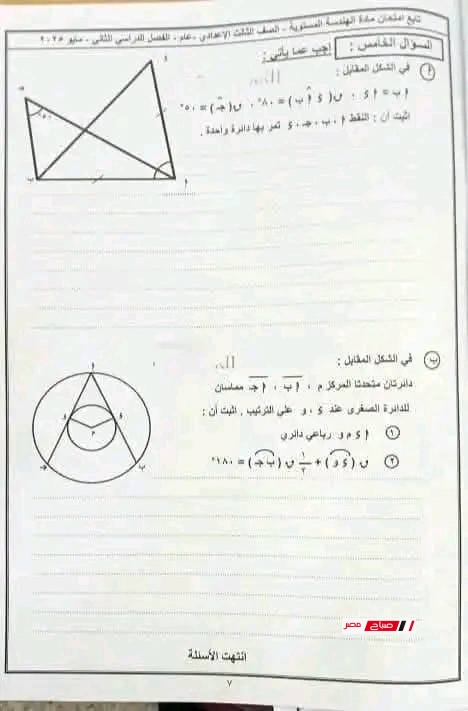 تابع امتحان مادة الهندسة المستوية - الصف الثالث الإعدادي - عام - الفصل الدراسي الثاني - مايو ٢٠٢٥
السؤال الخامس : أجب عما يأتي :
أ في الشكل المقابل :
أ ب = أ ء ، ن ( ء أ ب ) = ٨٠° ، ن ( جـ ) = ٥٠°
اثبت أن : النقط أ ، ب ، جـ ، ء تمر بها دائرة واحدة .
ء
جـ
٥٠°
ب
أ
ب في الشكل المقابل :
دائرتان متحدتا المركز م ، أ ب ، أ جـ مماسان
للدائرة الصغرى عند ء ، و على الترتيب . اثبت أن :
١ أ ء م و رباعي دائري
٢ ن ( ء و ) + ١/٢ ن ( ب جـ ) = ١٨٠°
أ
و
ء
م
جـ
ب
صباح مصر
انتهت الأسئلة
٧